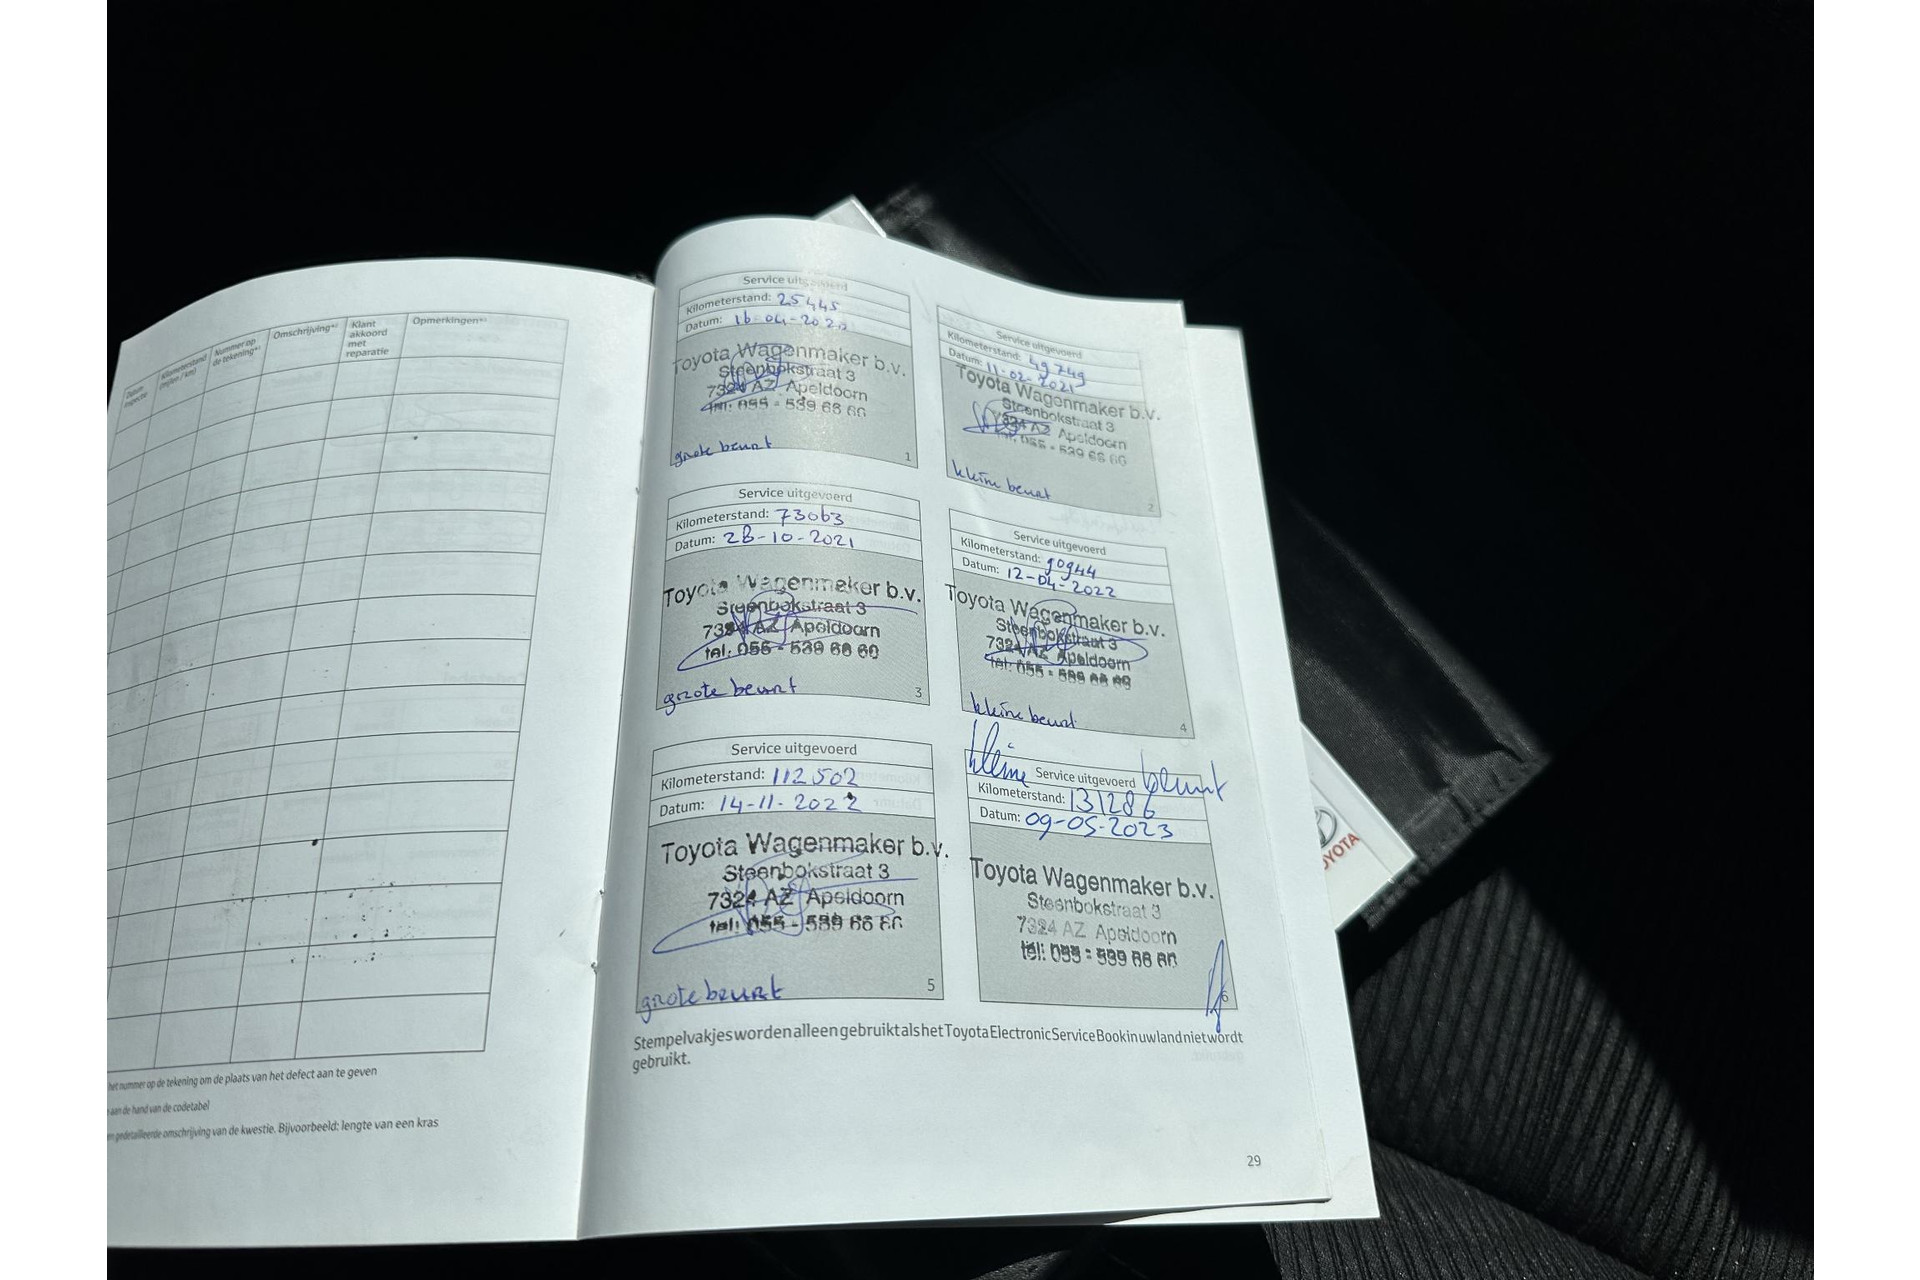 Datum inspectie
Kilometerstand (mijlen / km)
Nummer op de tekening*¹
Omschrijving*²
Klant akkoord met reparatie
Opmerkingen*³
het nummer op de tekening om de plaats van het defect aan te geven
aan de hand van de codetabel
gedetailleerde omschrijving van de kwestie. Bijvoorbeeld: lengte van een kras
Service uitgevoerd
Kilometerstand: 25445
Datum: 16-04-2020
Toyota Wagenmaker b.v.
Steenbokstraat 3
7324 AZ Apeldoorn
tel: 055 - 539 66 60
grote beurt
1
Service uitgevoerd
Kilometerstand: 49749
Datum: 11-02-2021
Toyota Wagenmaker b.v.
Steenbokstraat 3
7324 AZ Apeldoorn
tel: 055 - 539 66 60
kleine beurt
2
Service uitgevoerd
Kilometerstand: 73063
Datum: 28-10-2021
Toyota Wagenmaker b.v.
Steenbokstraat 3
7324 AZ Apeldoorn
tel: 055 - 539 66 60
grote beurt
3
Service uitgevoerd
Kilometerstand: 90944
Datum: 12-04-2022
Toyota Wagenmaker b.v.
Steenbokstraat 3
7324 AZ Apeldoorn
tel: 055 - 539 66 60
kleine beurt
4
Service uitgevoerd
Kilometerstand: 112502
Datum: 14-11-2022
Toyota Wagenmaker b.v.
Steenbokstraat 3
7324 AZ Apeldoorn
tel: 055 - 539 66 60
grote beurt
5
kleine Service uitgevoerd beurt
Kilometerstand: 131286
Datum: 09-05-2023
Toyota Wagenmaker b.v.
Steenbokstraat 3
7324 AZ Apeldoorn
tel: 055 - 539 66 60
6
Stempelvakjes worden alleen gebruikt als het Toyota Electronic Service Book in uw land niet wordt
gebruikt.
29
TOYOTA